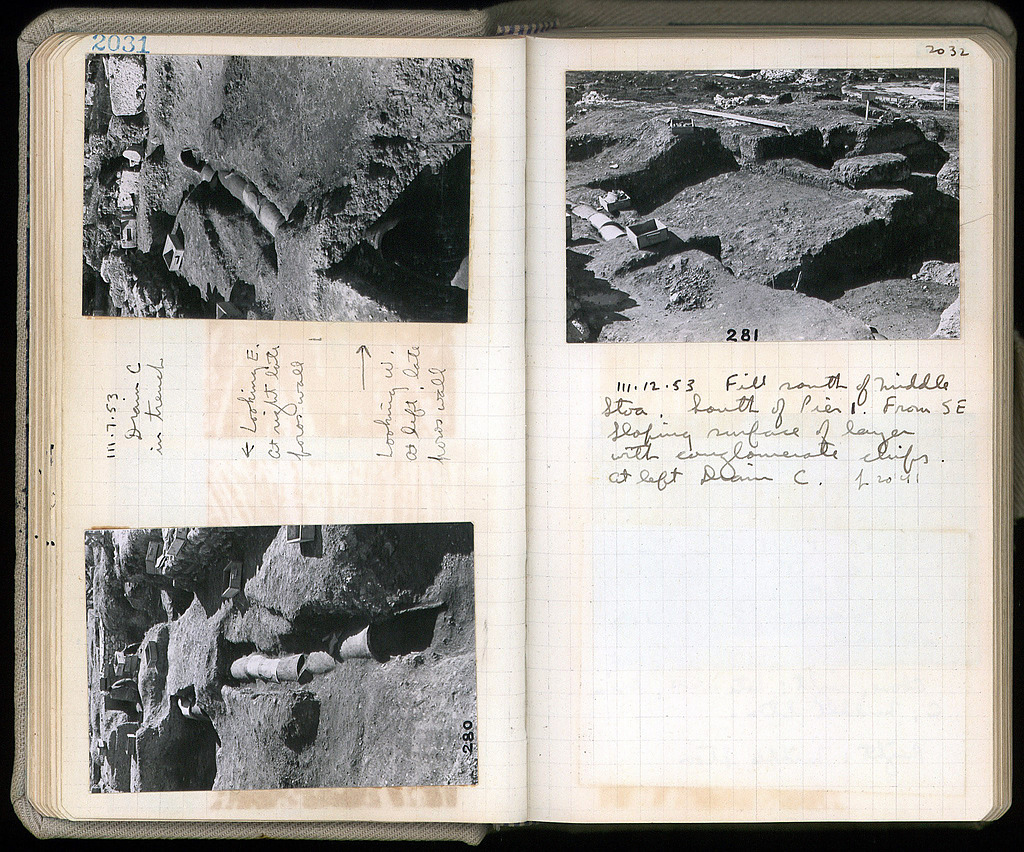 2031
111.7.53
Drain C
in trench
← Looking E.
at right late
poros wall
→
Looking W.
at left late
poros wall
280
2032
281
111.12.53 Fill south of Middle
Stoa. South of Pier 1. From SE
Sloping surface of layer
with conglomerate chips.
at left Drain C. p. 2041